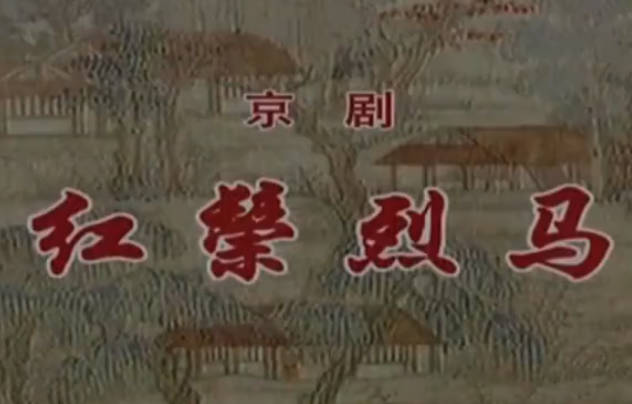 京剧
红榮烈马